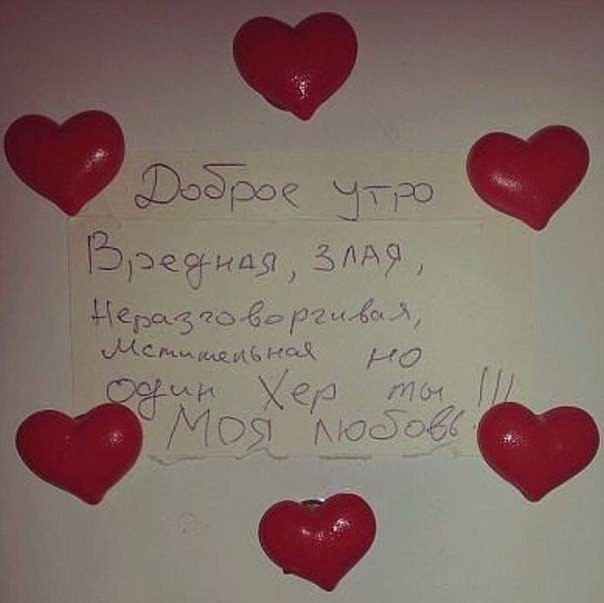 Доброе утро
Вредная, злая,
Неразговоргивая,
Мстительная но
один Хер ты !!!
Моя любовь